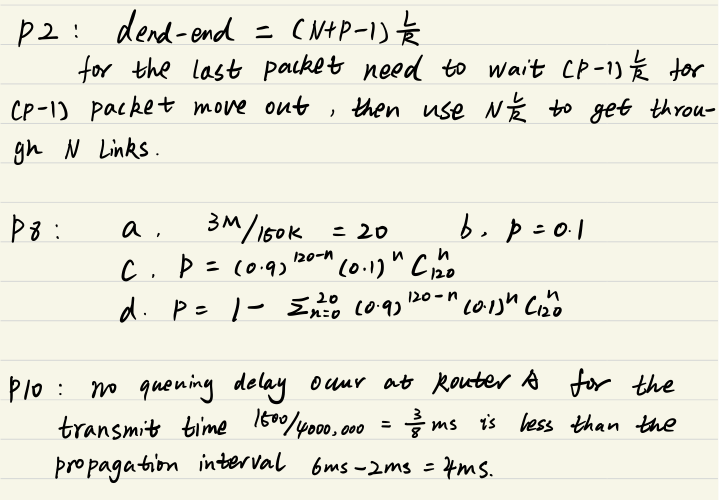 P2: dend-end = (N+P-1) L/R
for the last packet need to wait (P-1) L/R for
(P-1) packet move out, then use N L/R to get throu-
gh N Links.
P8: a. 3M/150K = 20 b. p = 0.1
c. P = (0.9)^{120-n} (0.1)^n C_{120}^n
d. P = 1 - Σ_{n=0}^{20} (0.9)^{120-n} (0.1)^n C_{120}^n
P10: no queuing delay occur at Router A for the
transmit time 1500/4000,000 = 3/8 ms is less than the
propagation interval 6ms-2ms = 4ms.